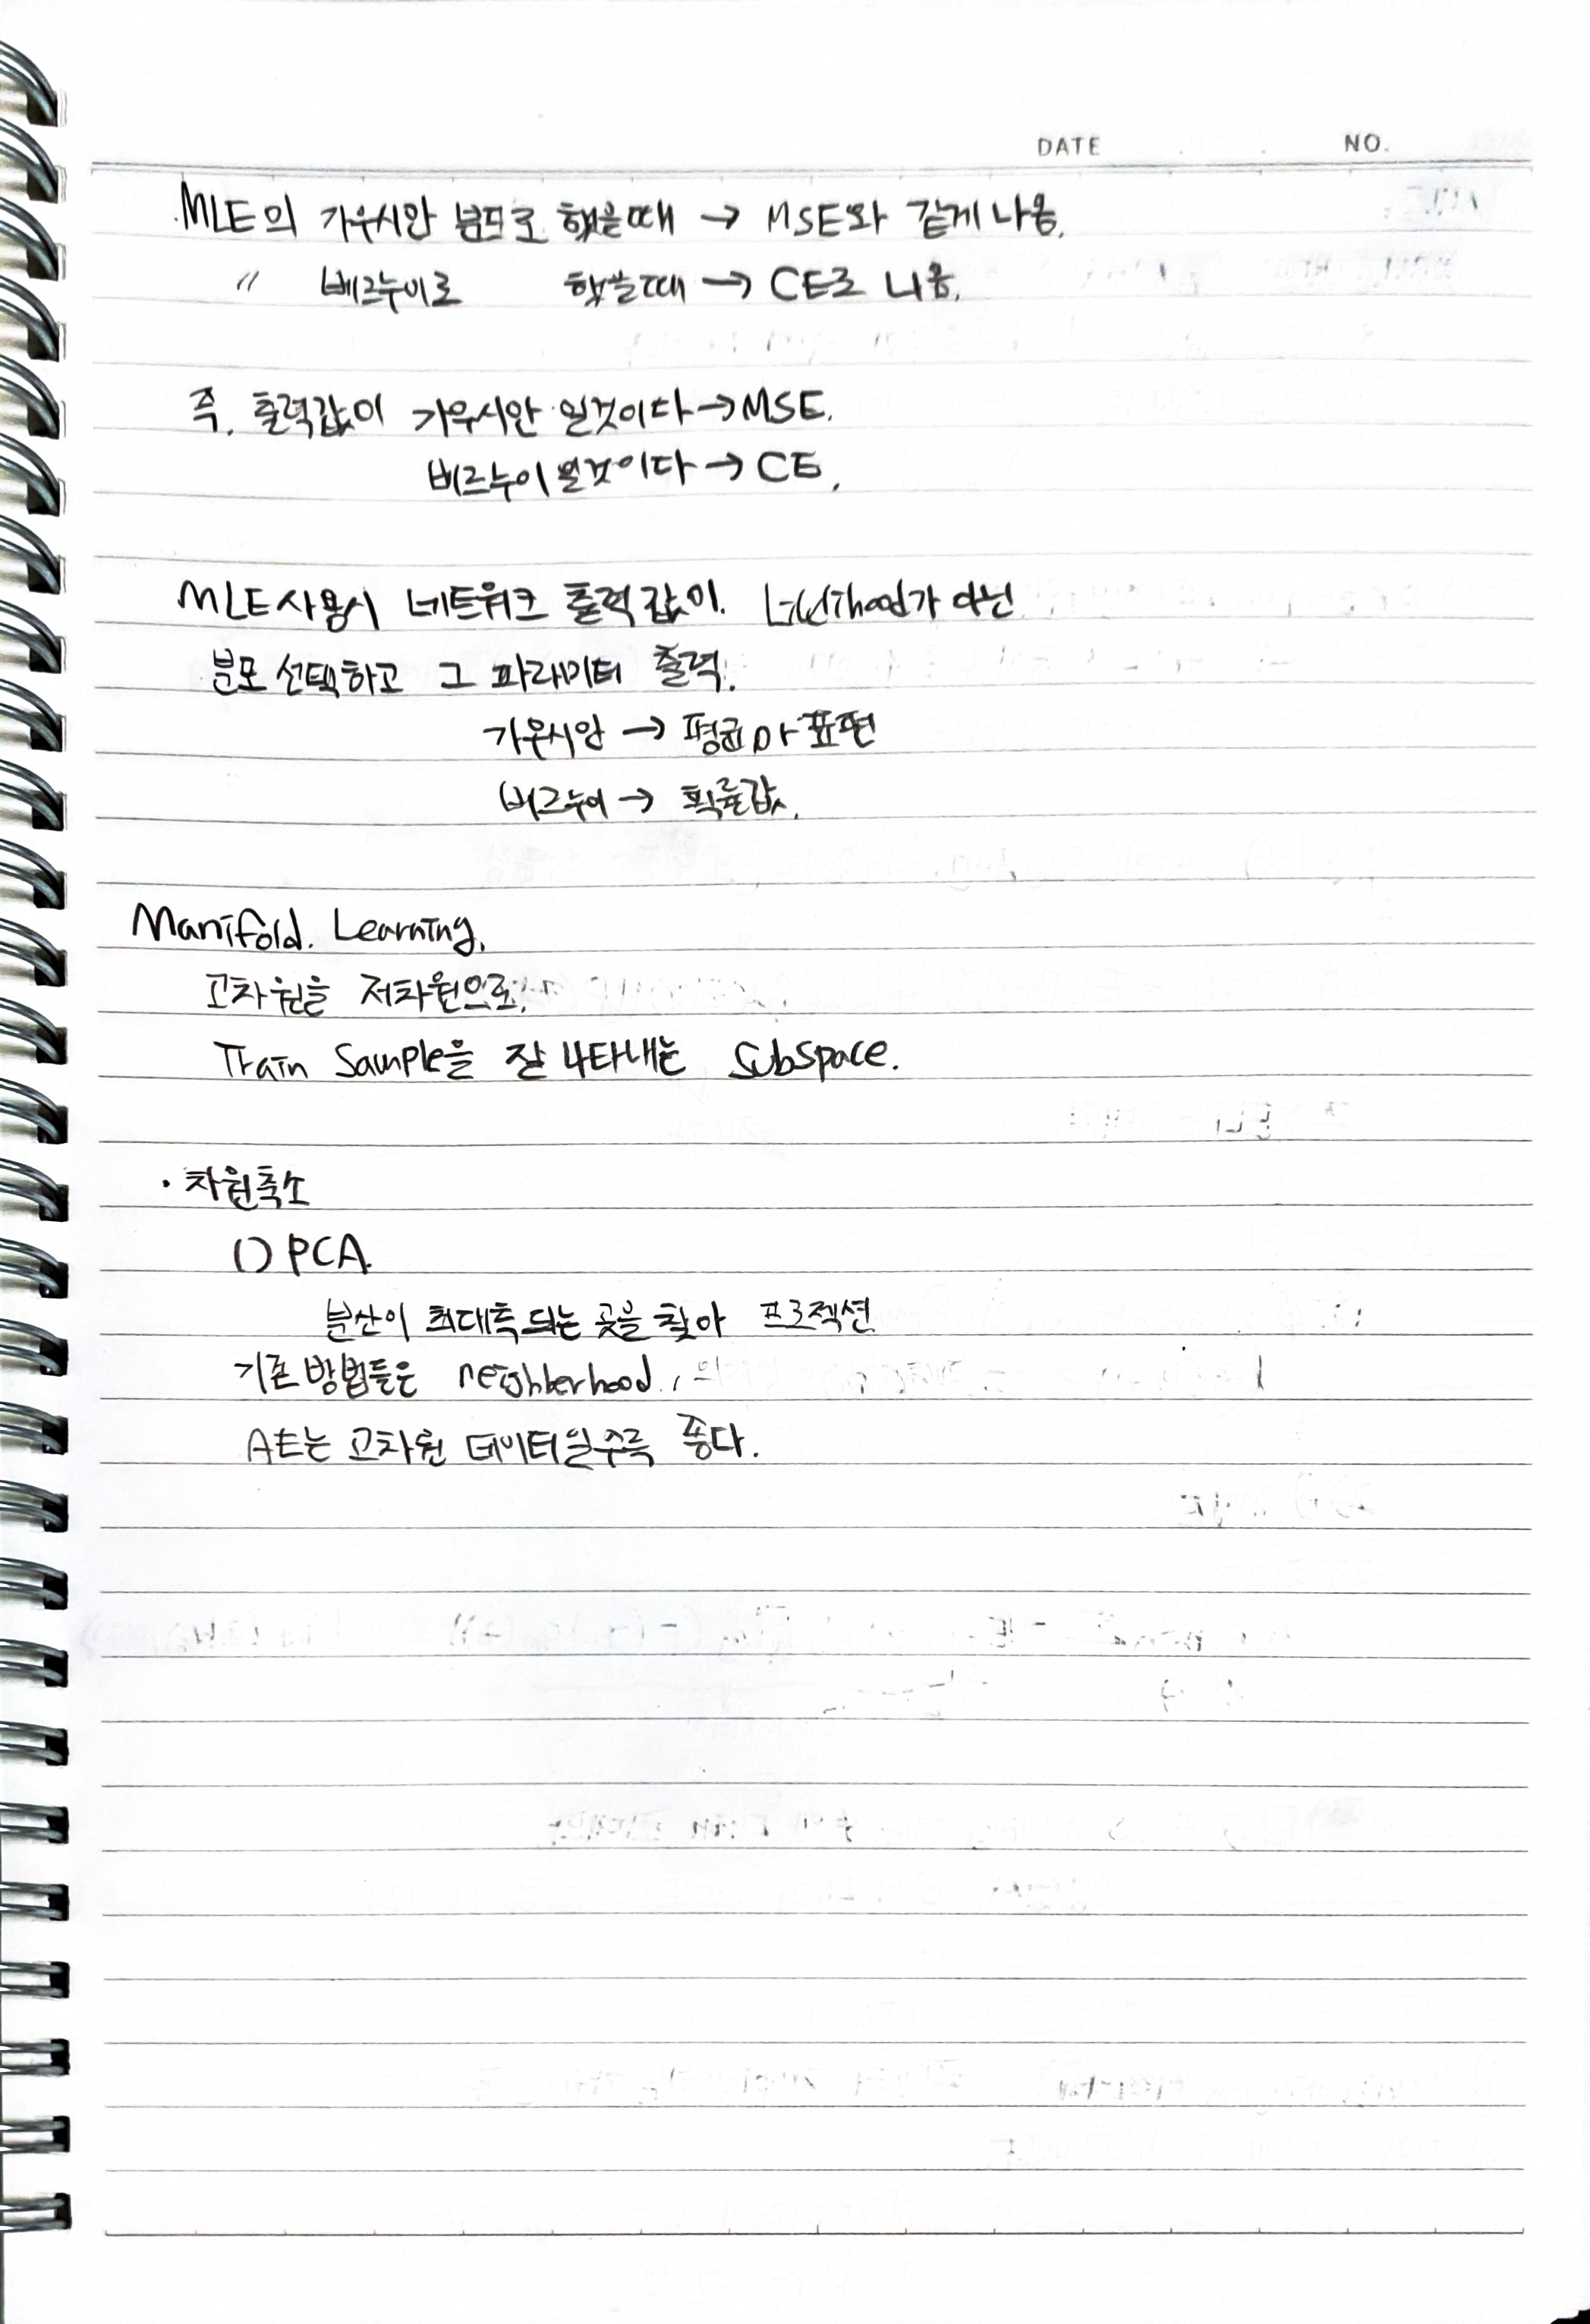 DATE NO.
MLE의 가우시안 분포로 했을때 → MSE와 같게 나옴.
〃 베르누이로 했을때 → CE로 나옴.
즉. 출력값이 가우시안 일것이다 → MSE.
베르누이 일것이다 → CE.
MLE 사용시 네트워크 출력값이. 가 아닌
분포 선택하고 그 파라미터 출력.
가우시안 → 평균 표편
베르누이 → 확률값.
Manifold. Learning.
고차원을 저차원으로.
Train Sample을 잘 나타내는 Subspace.
· 차원축소
1) PCA.
분산이 최대 되는 곳을 찾아 프로젝션
기존 방법들은 neighberhood.
AE는 고차원 데이터일수록 좋다.